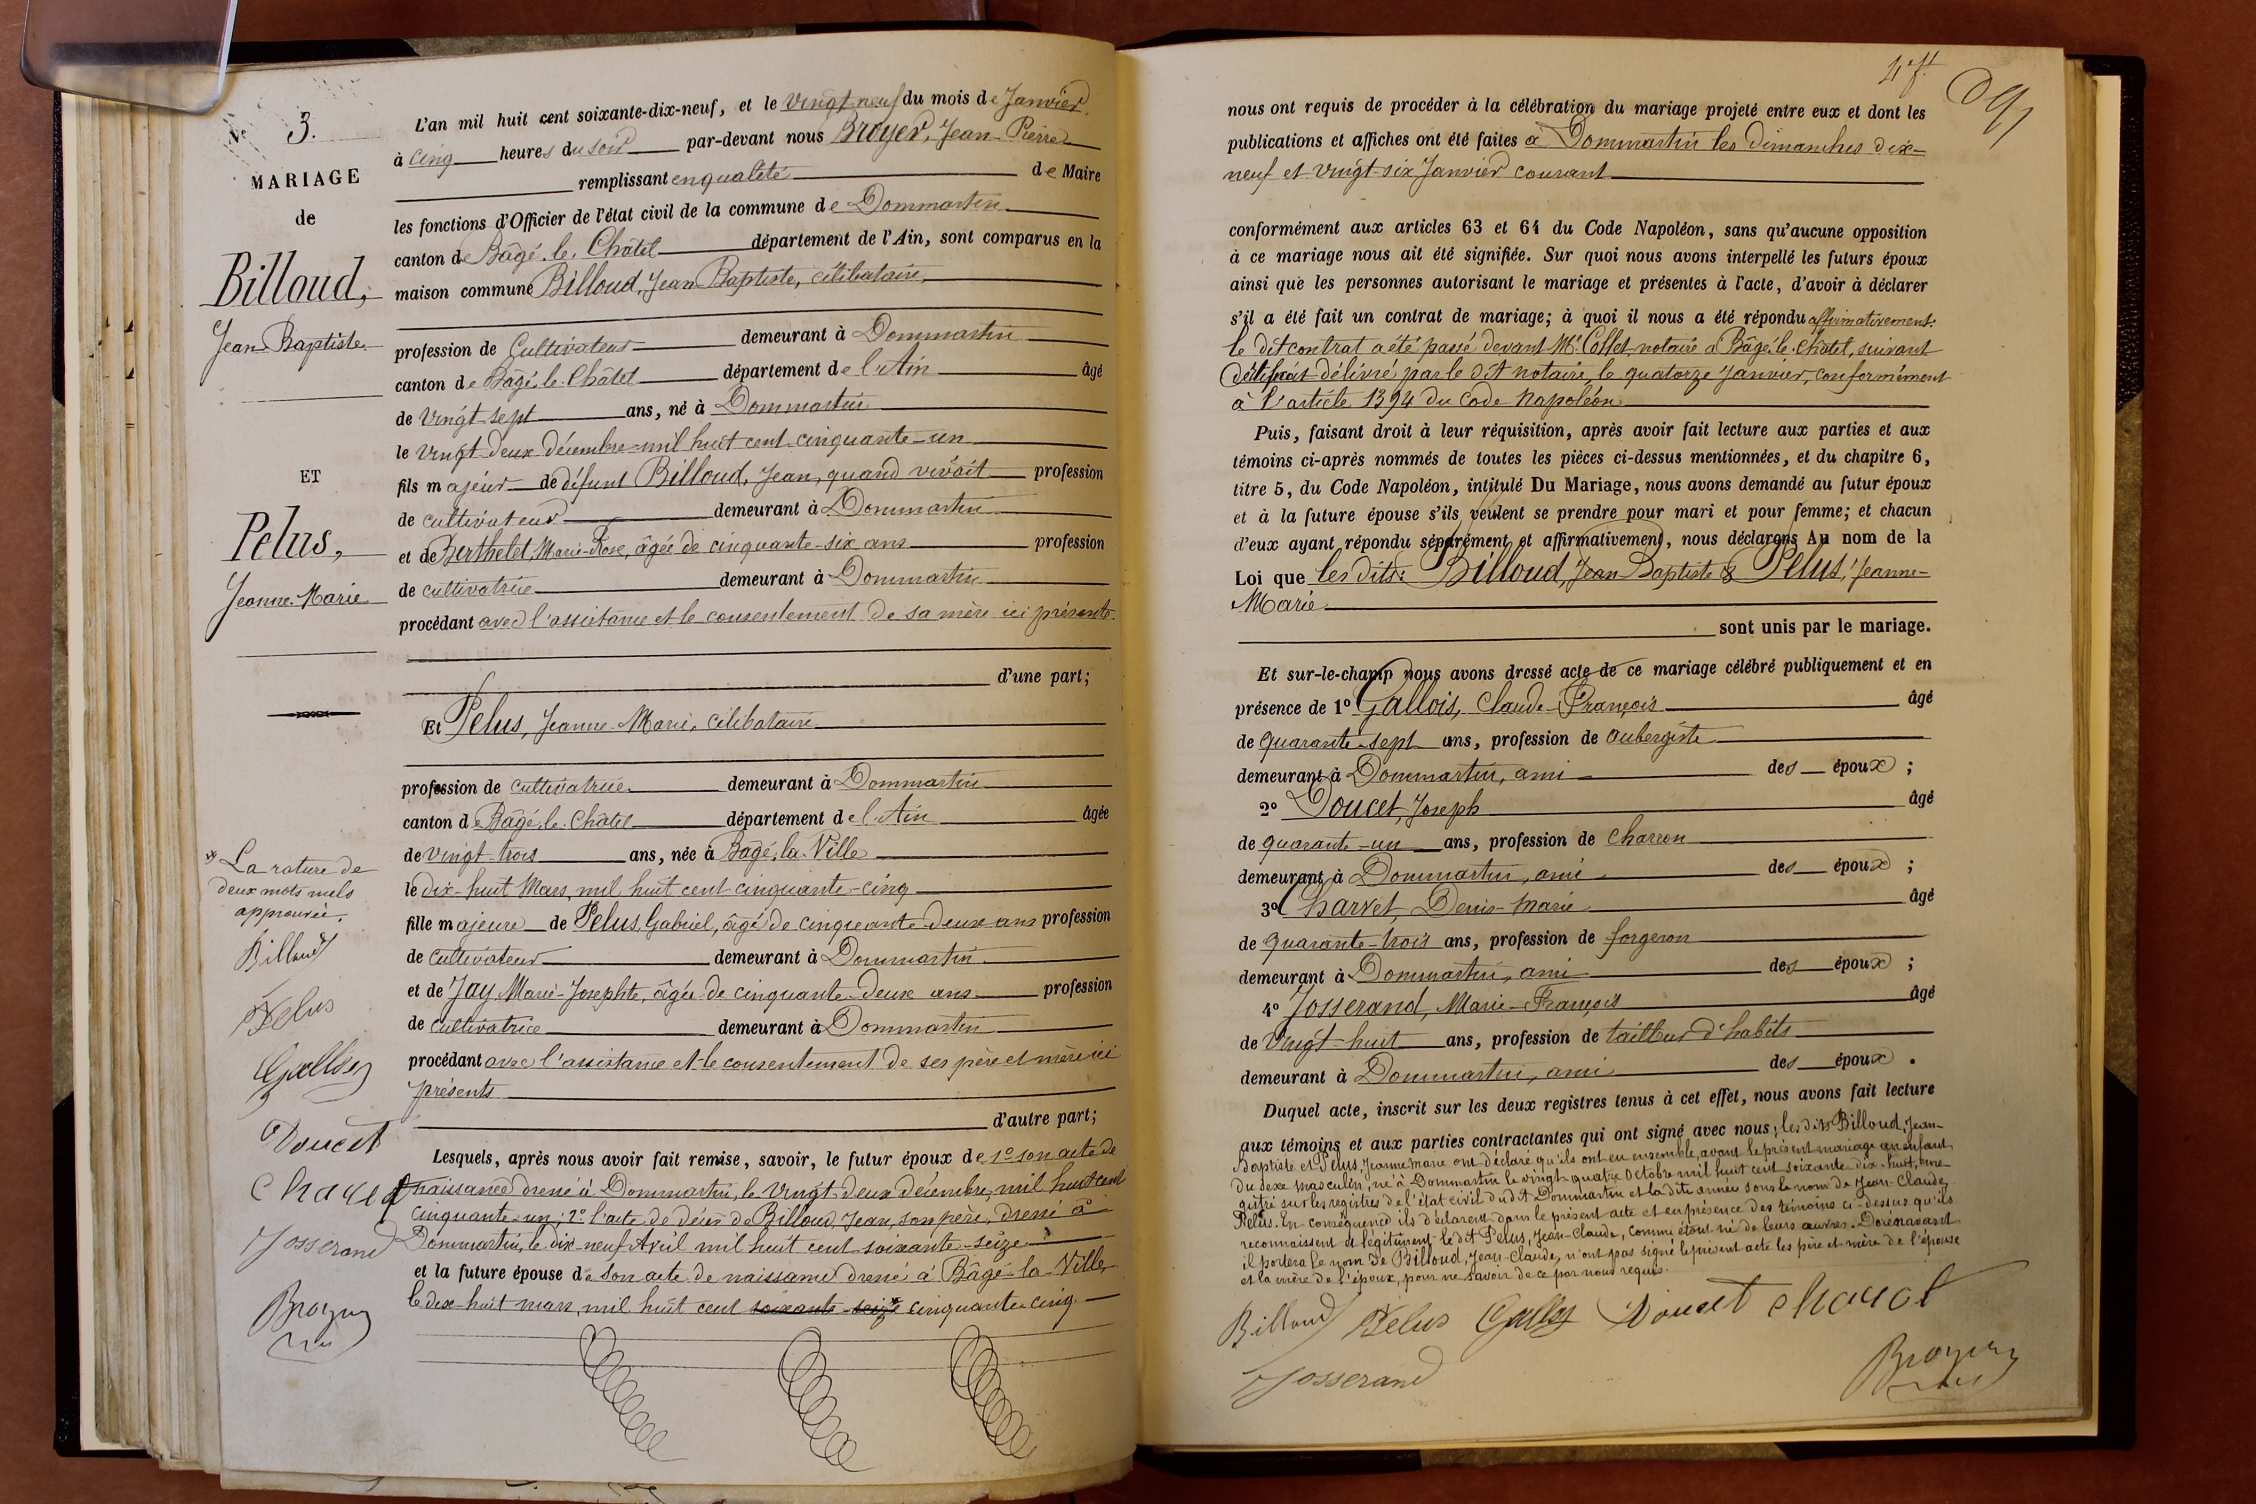 N° 3.
MARIAGE
de
Billoud,
Jean-Baptiste
ET
Pelus,
Jeanne-Marie
La rature de
deux mots nuls
approuvée.
Billoud
Pelus
Doucet
Josserand
Broyer
L'an mil huit cent soixante-dix-neuf, et le vingt neuf du mois de Janvier
à cinq heures du soir par-devant nous Broyer, Jean-Pierre
remplissant en qualité de Maire
les fonctions d'Officier de l'état civil de la commune de Dommartin
canton de Bâgé-le-Châtel département de l'Ain, sont comparus en la
maison commune Billoud, Jean Baptiste, célibataire,
profession de Cultivateur demeurant à Dommartin
canton de Bâgé-le-Châtel département de l'Ain âgé
de vingt-sept ans, né à Dommartin
le vingt-deux décembre mil huit cent cinquante-un
fils majeur de défunt Billoud, Jean, quand vivait profession
de cultivateur demeurant à Dommartin
et de Berthelet, Marie-Rose, âgée de cinquante-six ans profession
de cultivatrice demeurant à Dommartin
procédant avec l'assistance et le consentement de sa mère ici présente
d'une part;
Et Pelus, Jeanne-Marie, célibataire
profession de cultivatrice demeurant à Dommartin
canton de Bâgé-le-Châtel département de l'Ain âgée
de vingt-trois ans, née à Bâgé-la-Ville
le dix-huit Mars, mil huit cent cinquante-cinq
fille majeure de Pelus, Gabriel, âgé de cinquante-deux ans profession
de cultivateur demeurant à Dommartin
et de Jay, Marie-Josephte, âgée de cinquante-deux ans profession
de cultivatrice demeurant à Dommartin
procédant avec l'assistance et le consentement de ses père et mère ici
présents
d'autre part;
Lesquels, après nous avoir fait remise, savoir, le futur époux de 1° son acte de
naissance dressé à Dommartin, le vingt-deux décembre, mil huit cent
cinquante-un; 2° l'acte de décès de Billoud, Jean, son père, dressé à
Dommartin, le dix-neuf Avril mil huit cent soixante-seize
et la future épouse de son acte de naissance dressé à Bâgé-la-Ville,
le dix-huit mars, mil huit cent soixante-seize cinquante-cinq.
nous ont requis de procéder à la célébration du mariage projeté entre eux et dont les
publications et affiches ont été faites à Dommartin les dimanches dix-
neuf et vingt-six Janvier courant
conformément aux articles 63 et 64 du Code Napoléon, sans qu'aucune opposition
à ce mariage nous ait été signifiée. Sur quoi nous avons interpellé les futurs époux
ainsi que les personnes autorisant le mariage et présentes à l'acte, d'avoir à déclarer
s'il a été fait un contrat de mariage; à quoi il nous a été répondu affirmativement.
le dit contrat a été passé devant Me Collet notaire à Bâgé-le-Châtel, suivant
délivré par le dit notaire, le quatorze Janvier, conformément
à l'article 1394 du Code Napoléon
Puis, faisant droit à leur réquisition, après avoir fait lecture aux parties et aux
témoins ci-après nommés de toutes les pièces ci-dessus mentionnées, et du chapitre 6,
titre 5, du Code Napoléon, intitulé Du Mariage, nous avons demandé au futur époux
et à la future épouse s'ils veulent se prendre pour mari et pour femme; et chacun
d'eux ayant répondu séparément et affirmativement, nous déclarons Au nom de la
Loi que les dits: Billoud, Jean Baptiste & Pelus, Jeanne-
Marie
sont unis par le mariage.
Et sur-le-champ nous avons dressé acte de ce mariage célébré publiquement et en
présence de 1° Gallois, Claude-François âgé
de quarante-sept ans, profession de aubergiste
demeurant à Dommartin, ami des époux;
2° Doucet, Joseph âgé
de quarante-un ans, profession de charron
demeurant à Dommartin, ami des époux;
3° Charvet, Denis-Marie âgé
de quarante-trois ans, profession de forgeron
demeurant à Dommartin, ami des époux;
4° Josserand, Marie-François âgé
de vingt-huit ans, profession de tailleur d'habits
demeurant à Dommartin, ami des époux.
Duquel acte, inscrit sur les deux registres tenus à cet effet, nous avons fait lecture
aux témoins et aux parties contractantes qui ont signé avec nous; les dits Billoud, Jean-
Baptiste et Pelus, Jeanne Marie ont déclaré qu'ils ont eu ensemble, avant le présent mariage un enfant
du sexe masculin, né à Dommartin le vingt-quatre Octobre mil huit cent soixante dix-huit, enre-
gistré sur les registres de l'état civil du dit Dommartin et la dite année sous le nom de Jean-Claude
Pelus. En conséquence ils déclarent dans le présent acte et en présence des témoins ci-dessus qu'ils
reconnaissent et légitiment le dit Pelus, Jean-Claude, comme étant né de leurs œuvres. Dorénavant
il portera le nom de Billoud, Jean-Claude, n'ont pas signé le présent acte les père et mère de l'épouse
et la mère de l'époux, pour ne savoir de ce par nous requis.
Billoud Pelus Doucet
Josserand Broyer